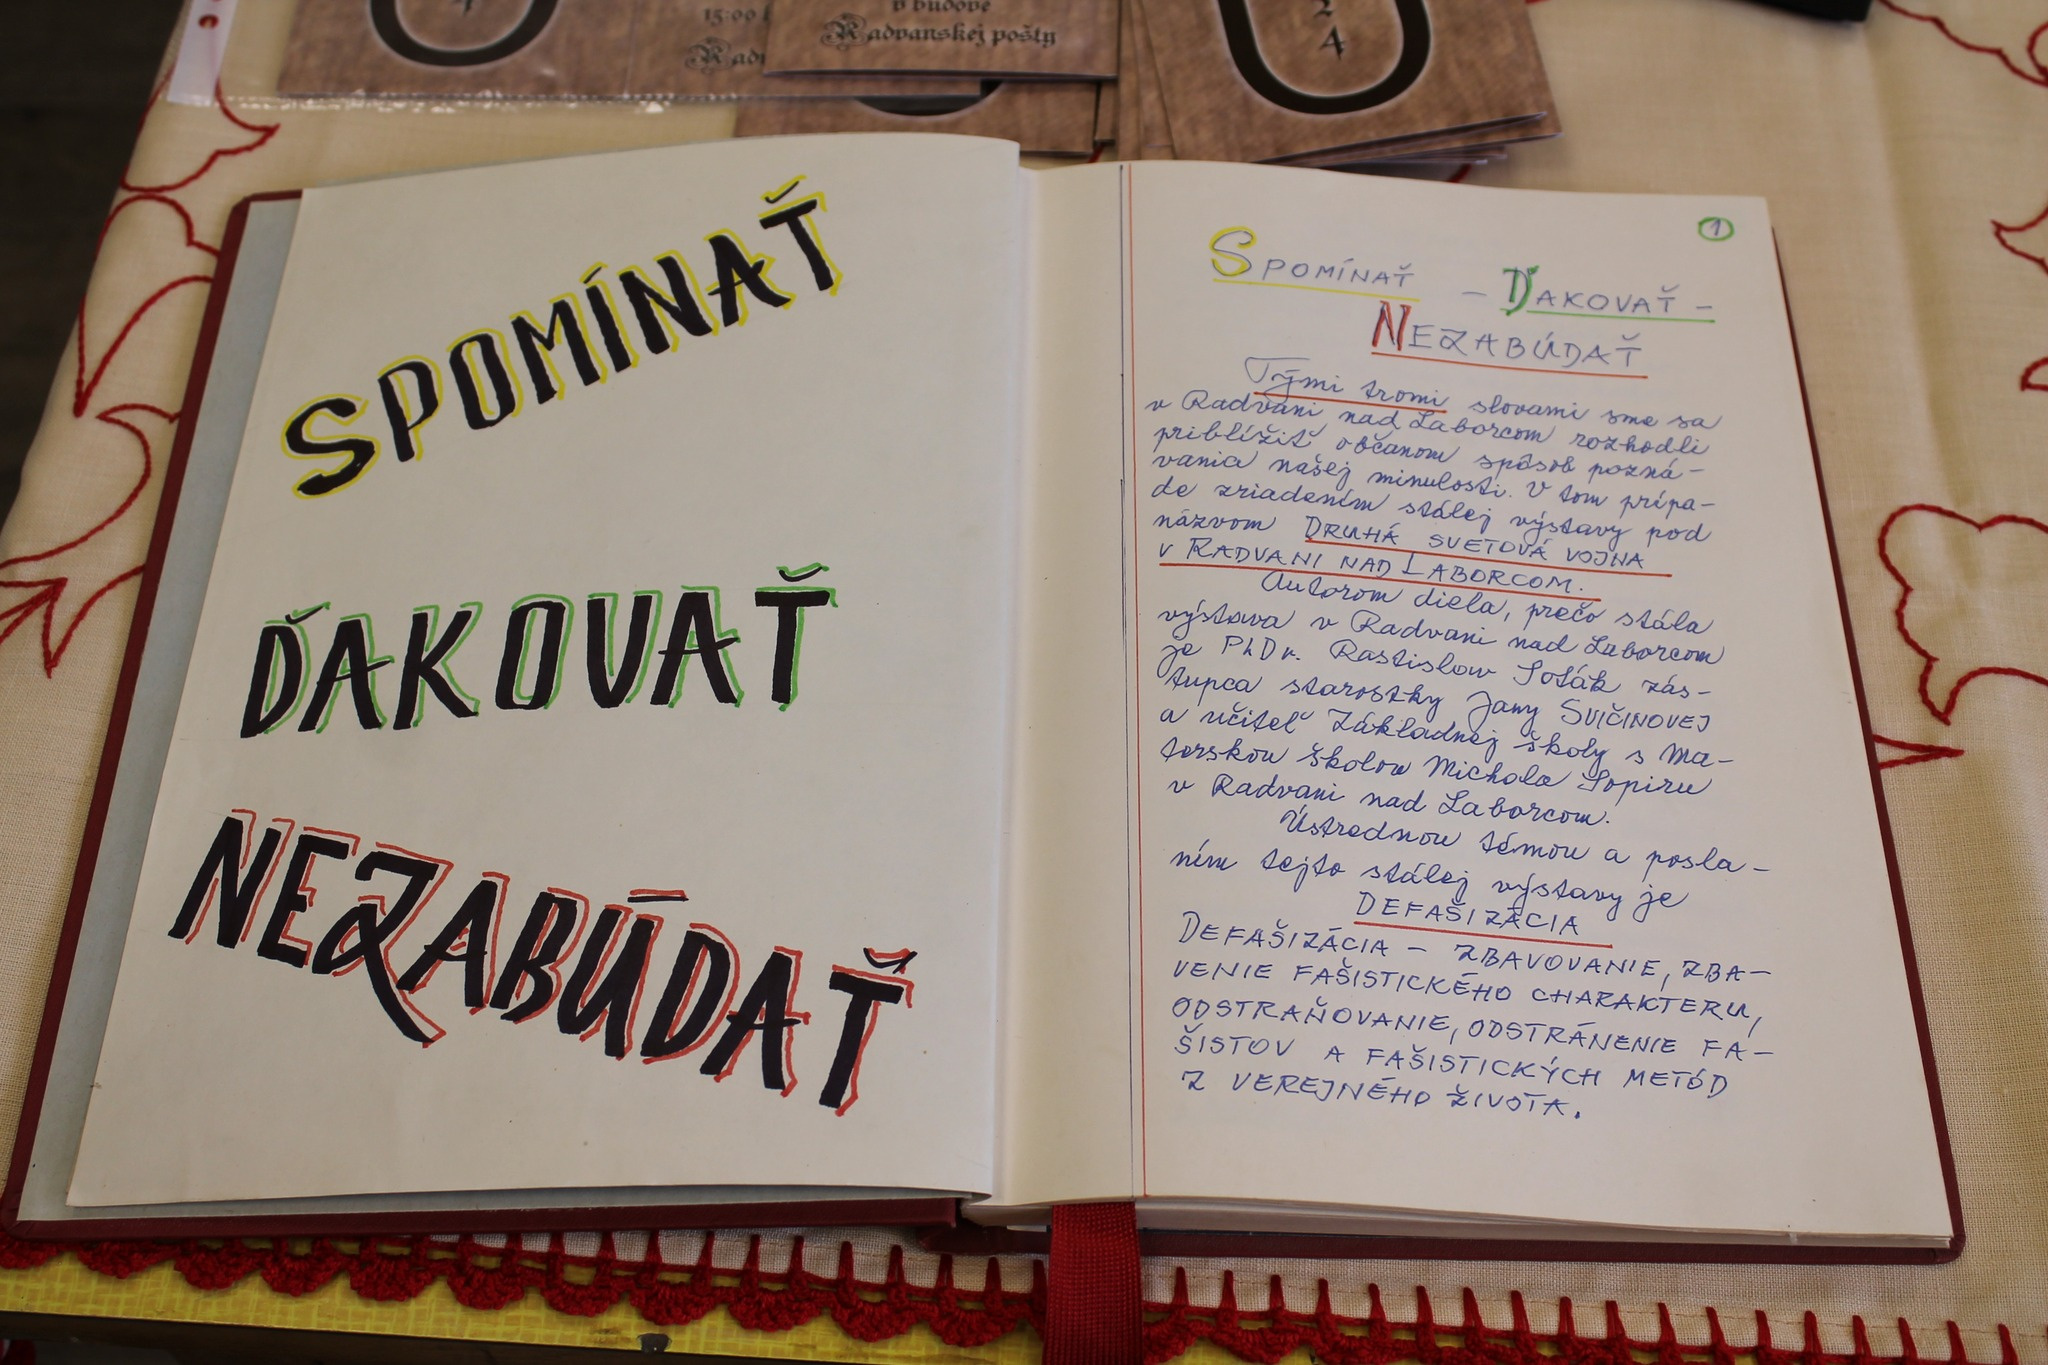 4
15:00
v budove
Radvanskej pošty
2
4
SPOMÍNAŤ
ĎAKOVAŤ
NEZABÚDAŤ
1
SPOMÍNAŤ - ĎAKOVAŤ -
NEZABÚDAŤ
Tými tromi slovami sme sa
v Radvani nad Laborcom rozhodli
priblížiť občanom spôsob pozná-
vania našej minulosti. V tom prípa-
de zriadením stálej výstavy pod
názvom DRUHÁ SVETOVÁ VOJNA
V RADVANI NAD LABORCOM.
Autorom diela, prečo stála
výstava v Radvani nad Laborcom
je PhDr. Rastislav Soták zás-
tupca starostky Jany SVIČINOVEJ
a učiteľ Základnej školy s Ma-
terskou školou Michala Sopiru
v Radvani nad Laborcom.
Ústrednou témou a posla-
ním tejto stálej výstavy je
DEFAŠIZÁCIA
DEFAŠIZÁCIA - ZBAVOVANIE, ZBA-
VENIE FAŠISTICKÉHO CHARAKTERU,
ODSTRAŇOVANIE, ODSTRÁNENIE FA-
ŠISTOV A FAŠISTICKÝCH METÓD
Z VEREJNÉHO ŽIVOTA.